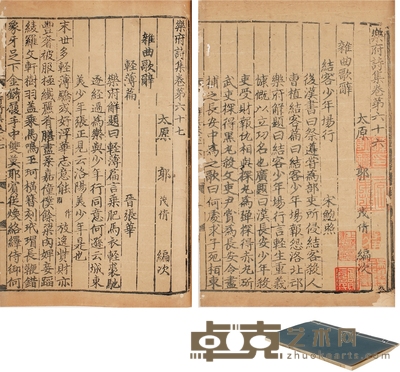 樂府詩集卷第六十六
太原 郭茂倩 編次
雜曲歌辭
結客少年場行 宋鮑照
後漢書曰祭遵嘗為部吏所侵結客殺人
曹植結客篇曰結客少年場報怨洛北邙
樂府解題曰結客少年場行言輕生重義
慷慨以立功名也廣題曰漢長安少年殺
吏受財報仇相與探丸為彈探得赤丸斫
武吏探得黑丸殺文吏尹賞為長安令盡
捕之長安中為之歌曰何所求子死桓東
樂府詩集卷第六十七
太原 郭茂倩 編次
雜曲歌辭
輕薄篇 晉張華
樂府解題曰輕薄篇言乘肥馬衣輕裘馳
逐經過為樂與少年行同意何遜云城東
美少年張正見云洛陽美少年是也
末世多輕薄驕代好浮華志意能放逸貲財亦
豐奢被服極纖麗肴膳盡柔嘉僮僕餘梁肉婢妾蹈
綾羅文軒樹羽蓋乘馬鳴玉珂橫簪刻玳瑁長鞭錯
象牙足下金鑮履手中雙莫耶賓從煥絡繹侍御何
卓克艺术网
www.zhuokearts.com